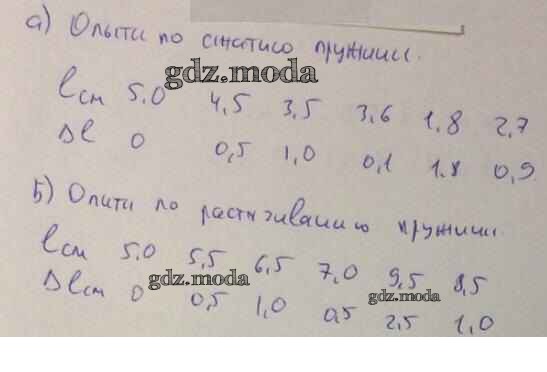 а) Опыты по сжатию пружины.
gdz.moda
l см 5.0 4,5 3,5 3,6 1,8 2,7
Δl 0 0,5 1,0 0,1 1.8 0,9
б) Опыты по растягиванию пружины.
l см 5.0 5,5 6,5 7,0 9,5 8,5
gdz.moda
gdz.moda
Δl см 0 0,5 1,0 0,5 2,5 1,0